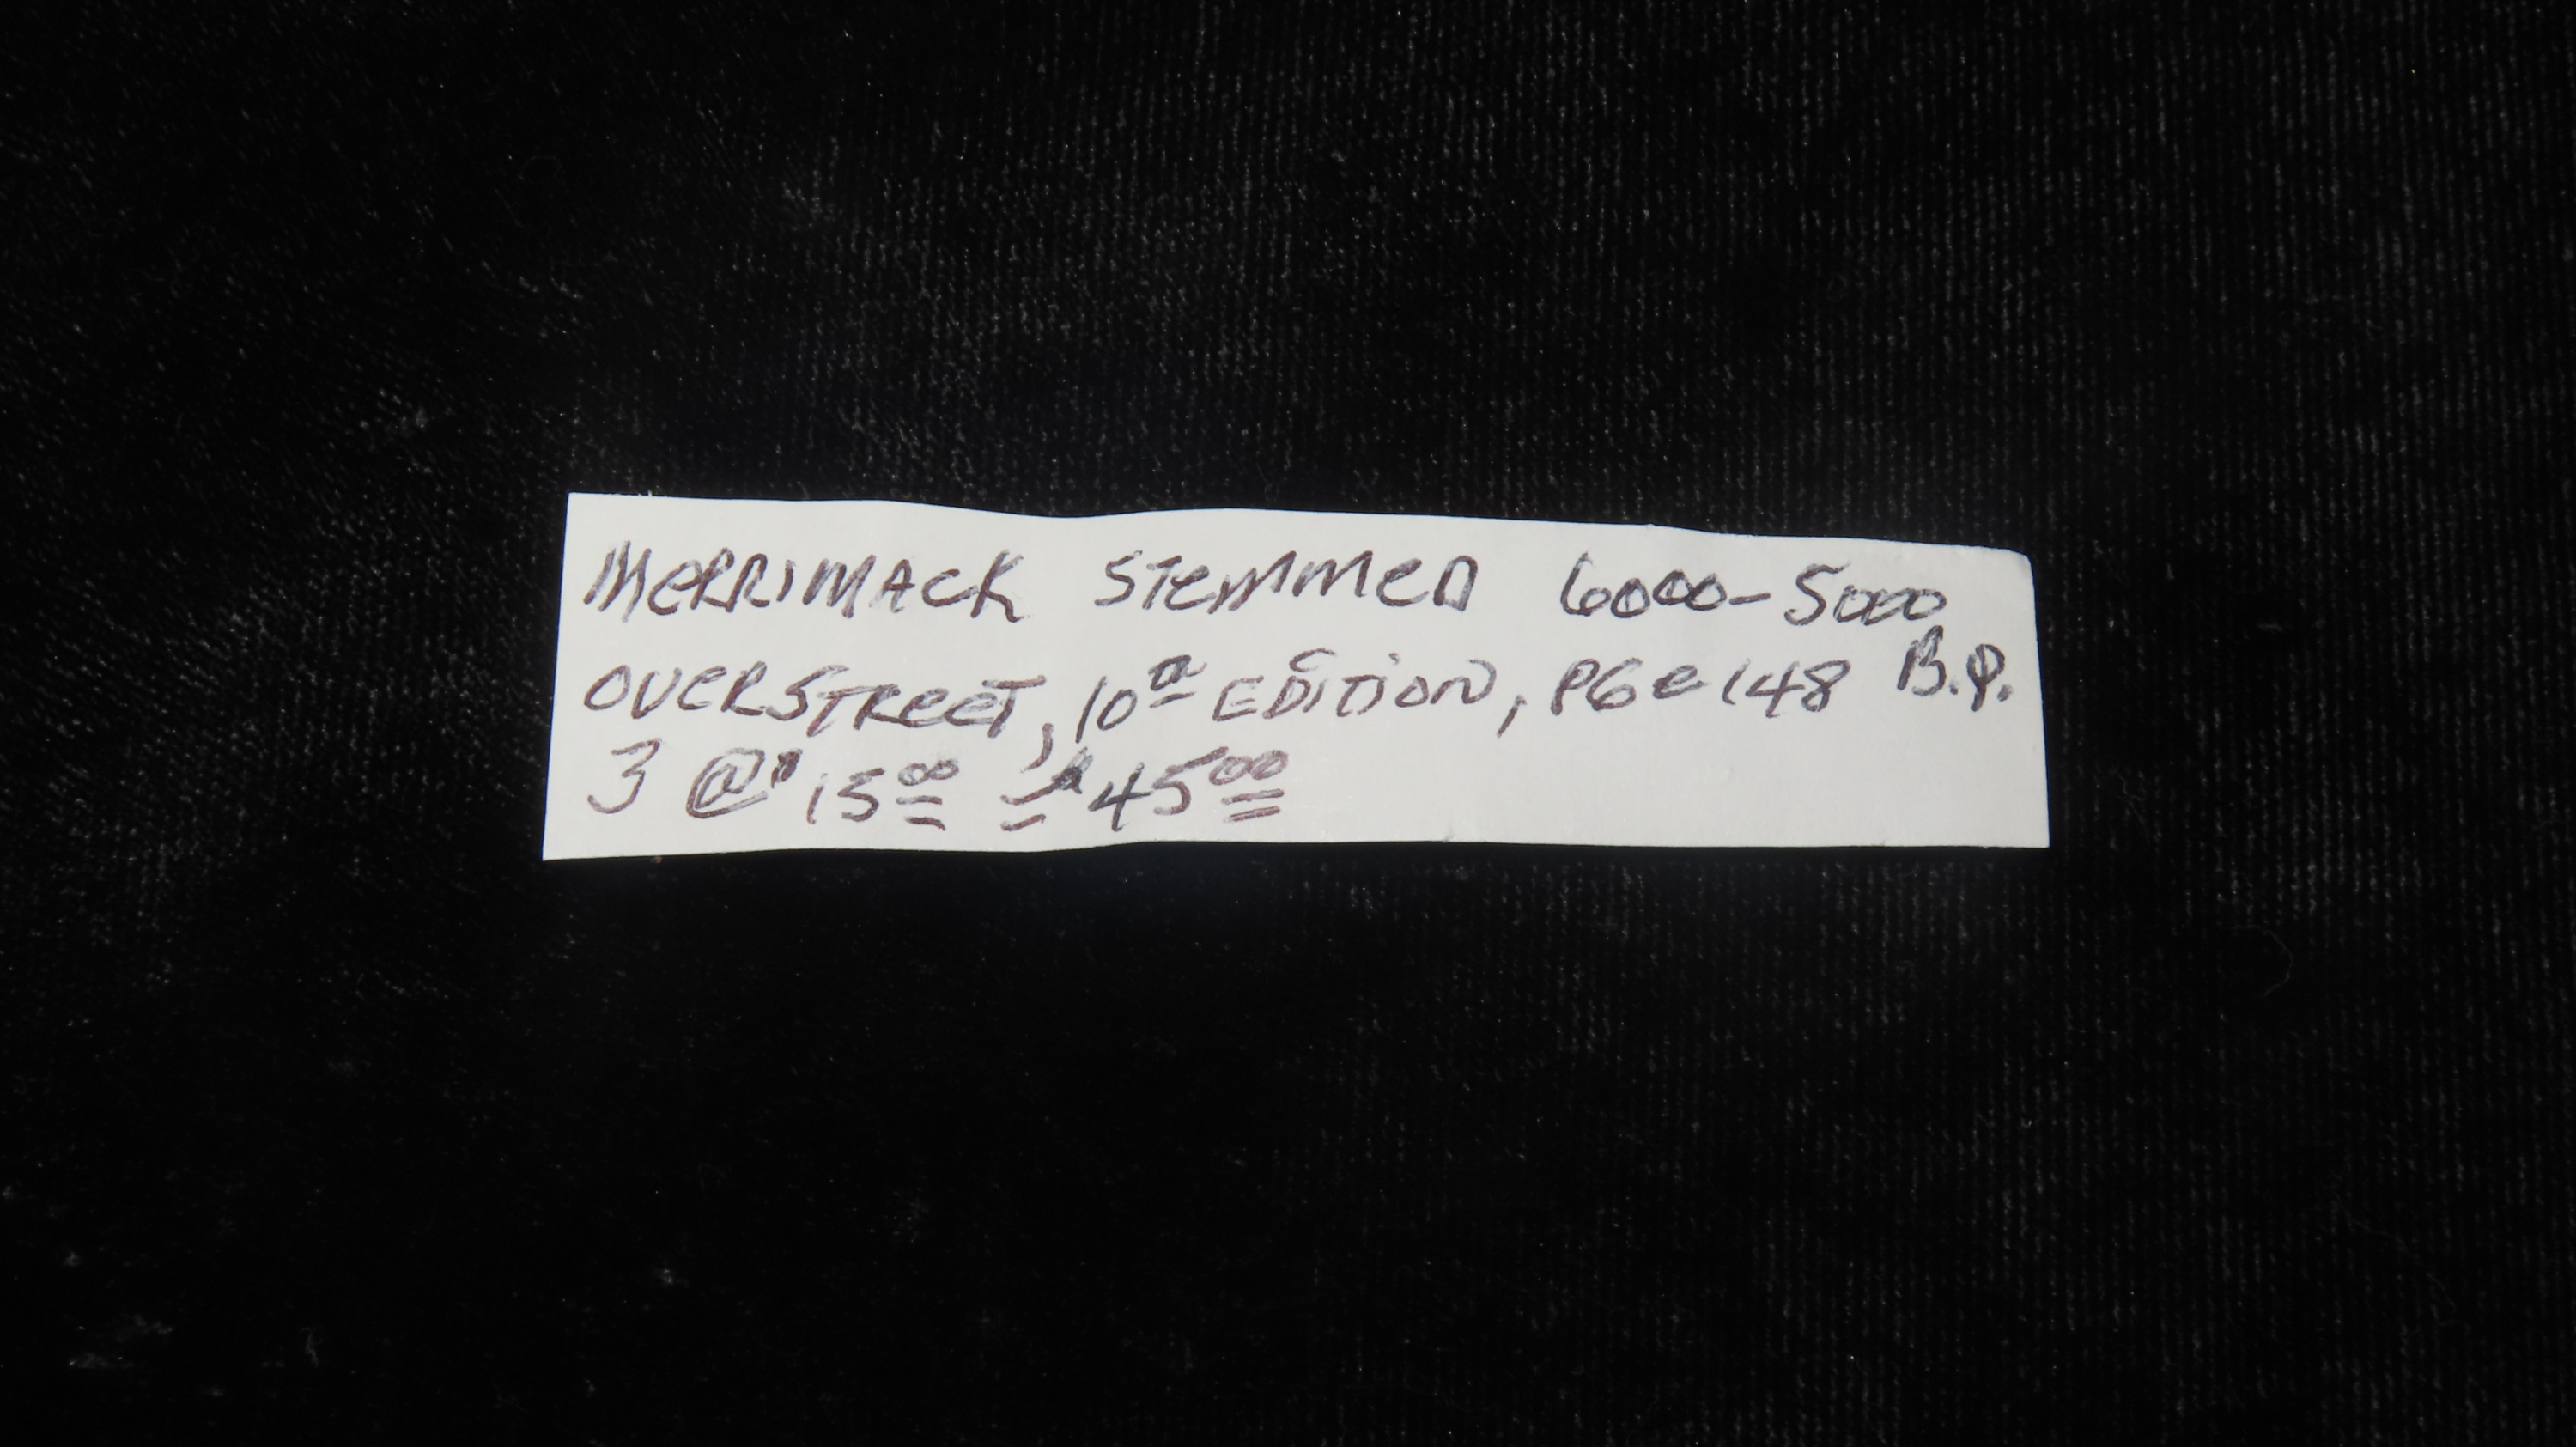 MERRIMACK STEMMED 6000-5000 B.P.
OVERSTREET, 10th EDITION, PGE 148
3 @ 15.00 = 45.00